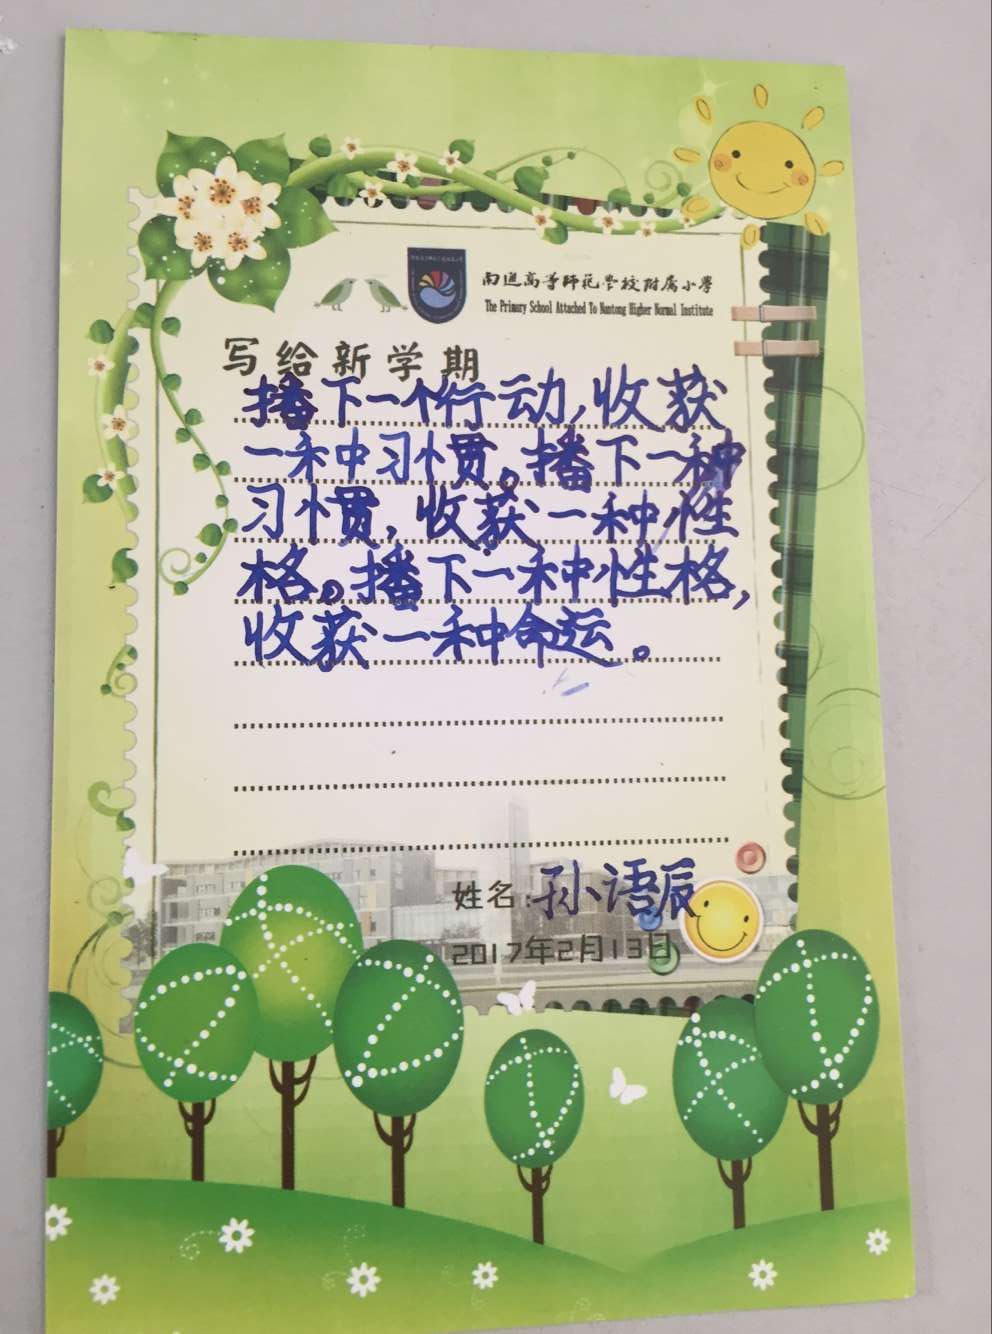 南通高等师范学校附属小学
The Primary School Attached To Nantong Higher Normal Institute
写给新学期
播下一个行动,收获
一种习惯。播下一种
习惯,收获一种性
格。播下一种性格,
收获一种命运。
姓名:孙语辰
2017年2月13日